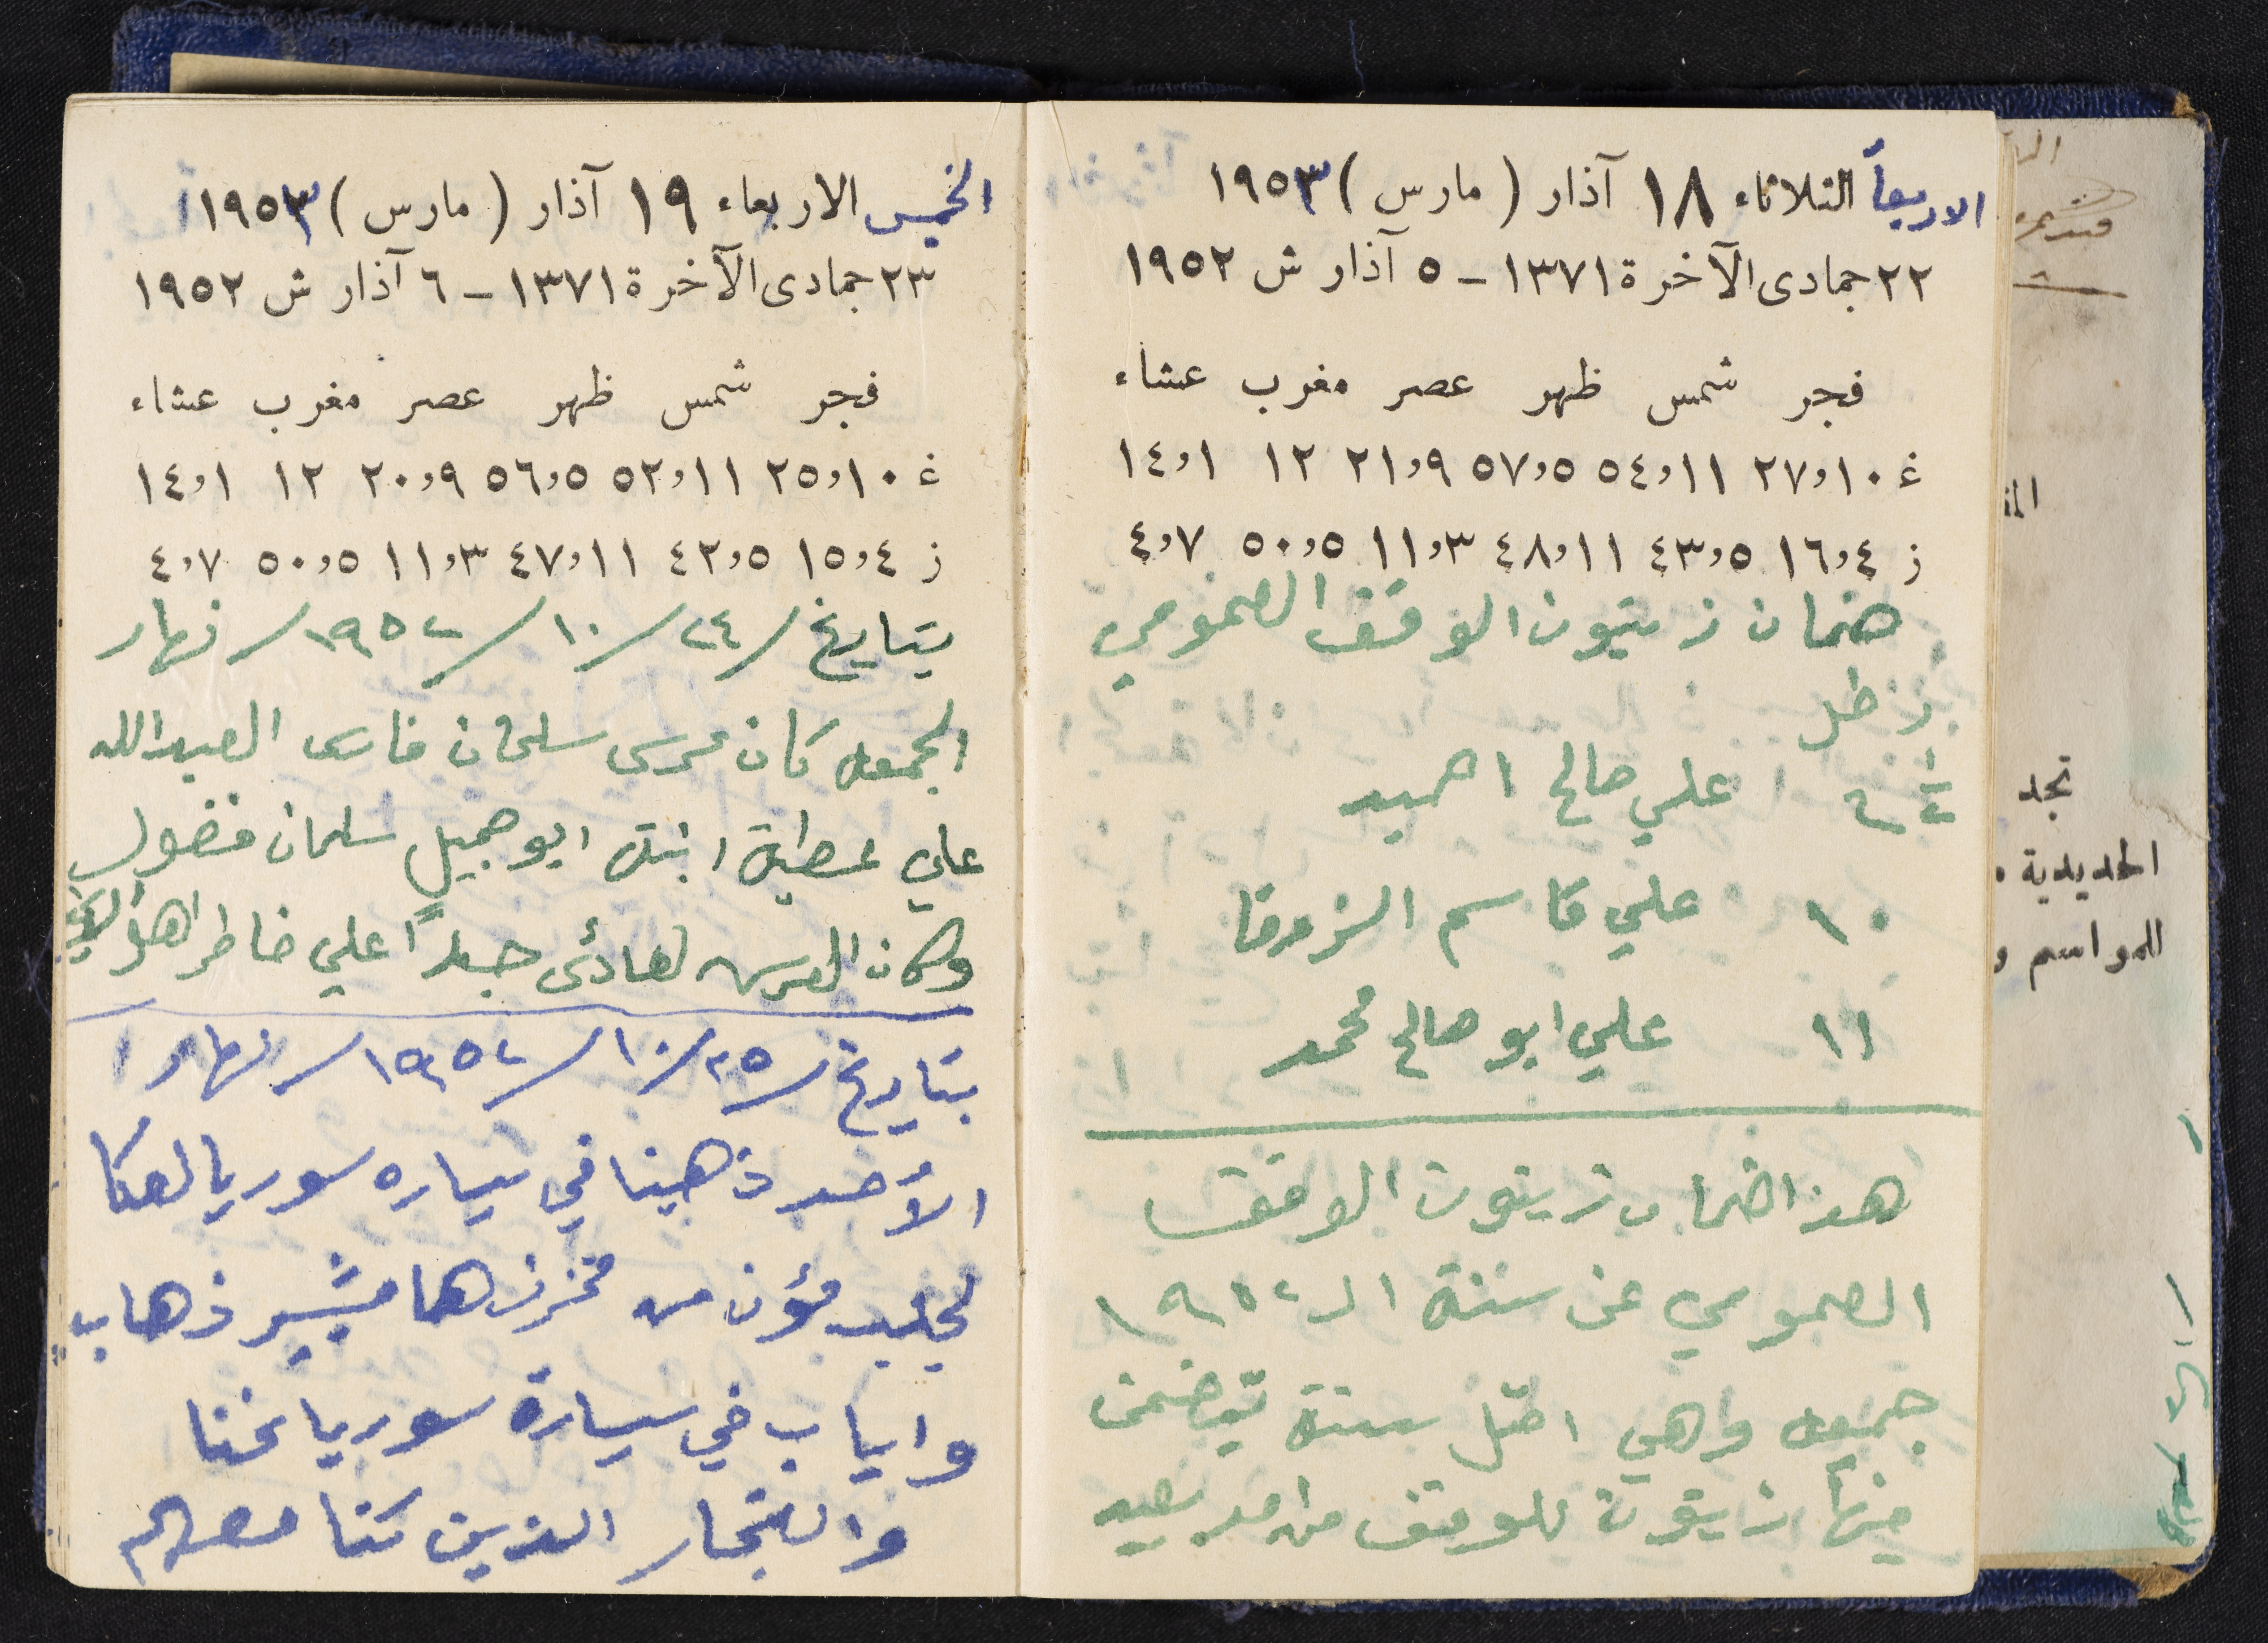 الاربعاً الثلاثاء ١٨ آذار ( مارس ) ١٩٥٣
٢٢ جمادى الآخرة ١٣٧١ - ٥ آذار ش ١٩٥٢
فجر شمس ظهر عصر مغرب عشاء
غ ١٠،٢٧ ١١،٥٤ ٥،٥٧ ٩،٢١ ١٢ ١،١٤
ز ٤،١٦ ٥،٤٣ ١١،٤٨ ٣،١١ ٥،٥٠ ٧،٤
ضمان زيتون الوقف العمومي
رطل
علي صالح احميد
١٠ علي قاسم الزرقا
١١ علي ابو صالح محمد
هذا ضمان زيتون الوقف
العمومي عن سنة الـ ١٩٥٢
جميعه وهي اقل سنة تيضمن
فيها زيتون للوقف من مد بعيد
الخميس الاربعاء ١٩ آذار ( مارس ) ١٩٥٣
٢٣ جمادى الآخرة ١٣٧١ - ٦ آذار ش ١٩٥٢
فجر شمس ظهر عصر مغرب عشاء
غ ١٠،٢٥ ١١،٥٢ ٥،٥٦ ٩،٢٠ ١٢ ١،١٤
ز ٤،١٥ ٥،٤٢ ١١،٤٧ ٣،١١ ٥،٥٠ ٧،٤
بتاريخ /٢٤ /١٠ /١٩٥٢ / نهار
الجمعه كان عرس سلمان فارس العبدالله
علي عطية ابنة ابو جميل سلمان فضول
وكان العرس هادئ جداً علي خاطر اهل
بتاريخ /٢٥ /١٠ /١٩٥٢ / نهار
الأحد ذهبنا في سياره سوريا لعكا
لجلب مؤن من مخزن هامشبير ذهاب
واياب في سيارة سوريا نحنا
والتجار الذين كنا معهم
تجد
الحديدية
للمواسم و